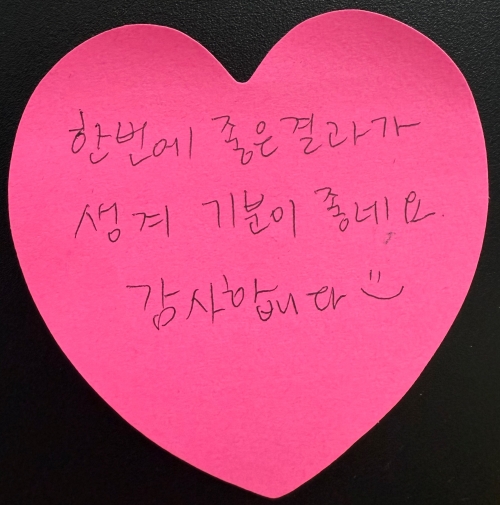 한번에 좋은결과가
생겨 기분이 좋네요.
감사합니다 :)